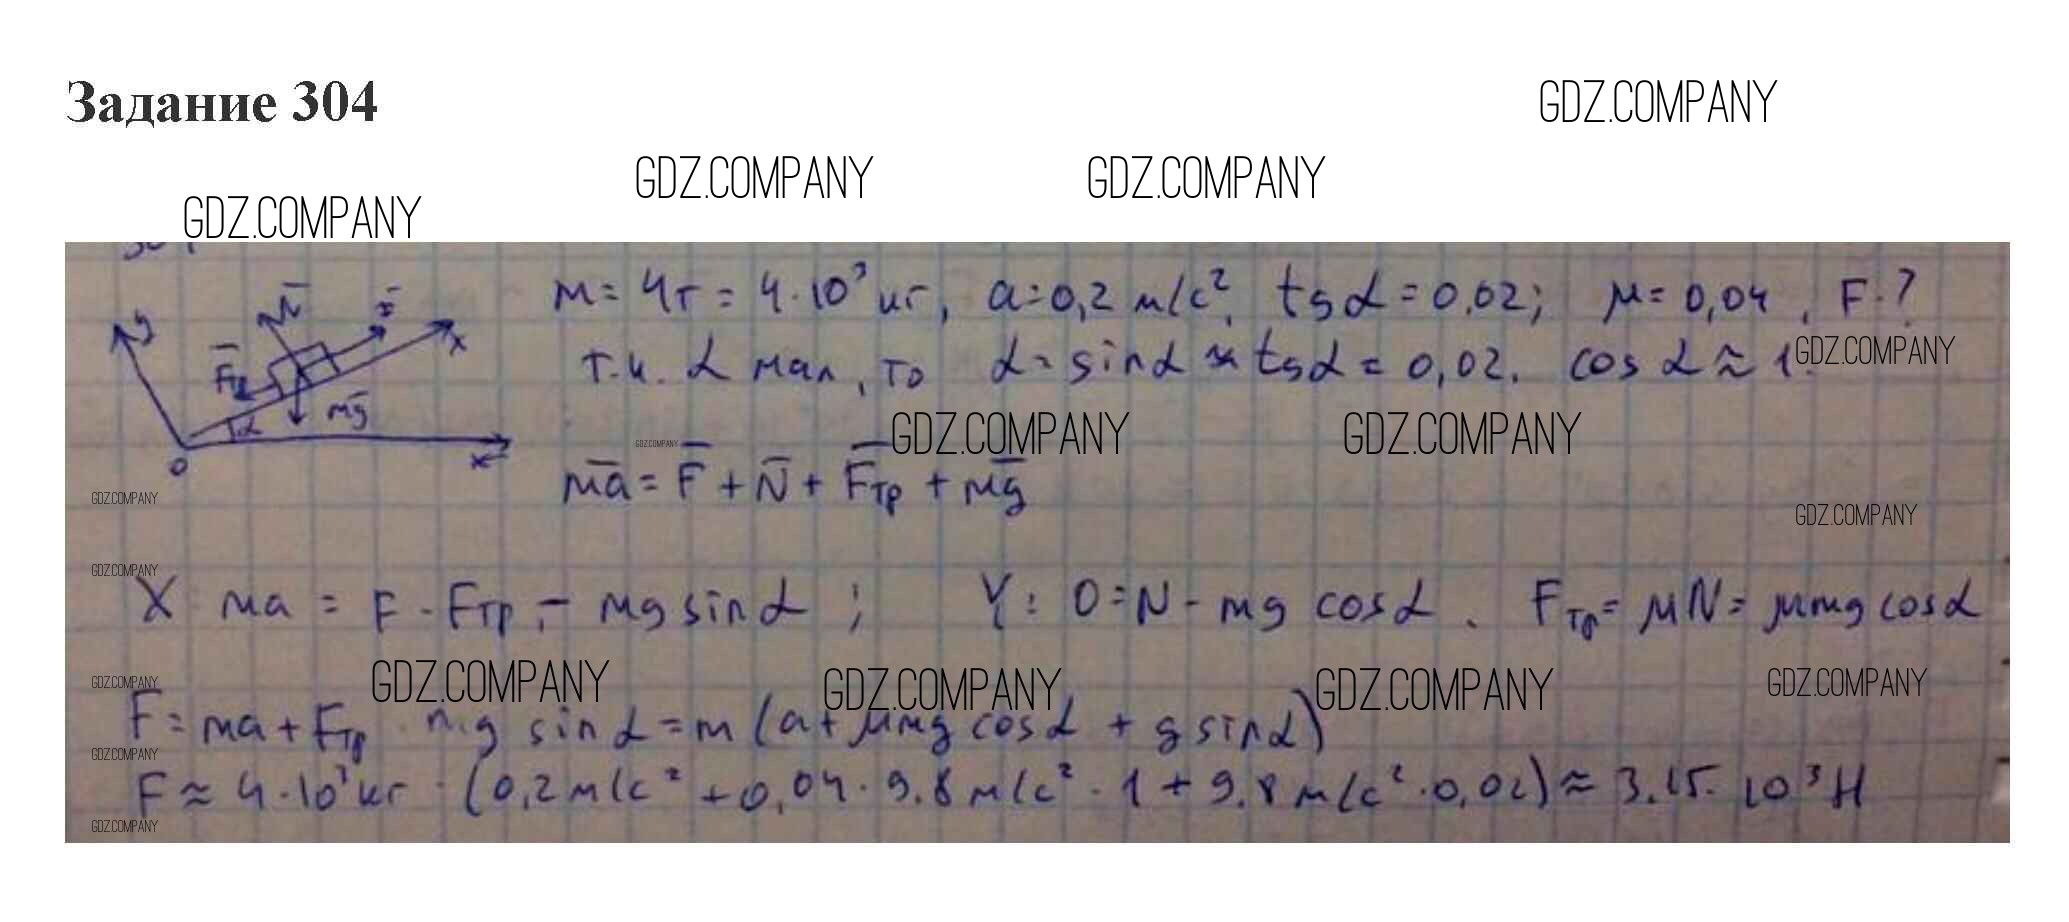 Задание 304
GDZ.COMPANY
GDZ.COMPANY
GDZ.COMPANY
GDZ.COMPANY
y N x F Fтр mg α 0 x
m = 4т = 4·10³ кг, a = 0,2 м/с², tg α = 0.02; μ = 0,04, F-?
т.к. α мал, то α ≈ sin α ≈ tg α = 0,02. cos α ≈ 1.
GDZ.COMPANY
GDZ.COMPANY
GDZ.COMPANY
GDZ.COMPANY
ma = F + N + Fтр + mg
GDZ.COMPANY
GDZ.COMPANY
GDZ.COMPANY
X ma = F - Fтр - mg sin α ; Y: 0 = N - mg cos α . Fтр = μN = μmg cos α
GDZ.COMPANY
GDZ.COMPANY
GDZ.COMPANY
GDZ.COMPANY
GDZ.COMPANY
F = ma + Fтр mg sin α = m (a + μmg cos α + g sin α)
GDZ.COMPANY
F ≈ 4·10³ кг · (0,2 м/с² + 0,04 · 9.8 м/с² · 1 + 9.8 м/с² · 0,02) ≈ 3.15 · 10³ Н
GDZ.COMPANY